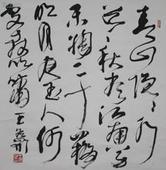 青山隱隱水
迢迢秋盡江南草
未凋二十四橋
明月夜玉人何
處教吹簫